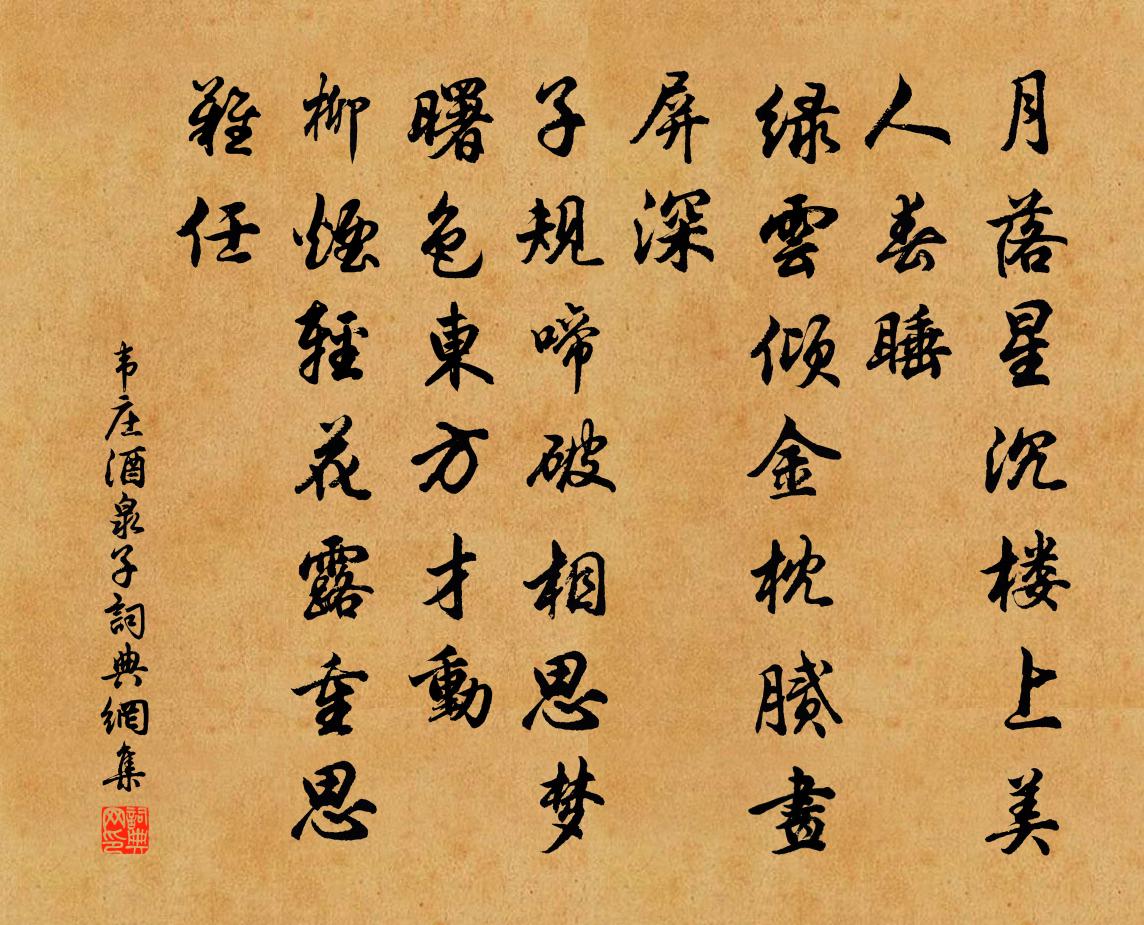 月落星沉楼上美
人春睡
绿雲倾金枕膩畫
屏深
子规啼破相思梦
曙色東方才動
柳煙輕花露重思
難任
韦庄酒泉子詞典網集
詞典网印